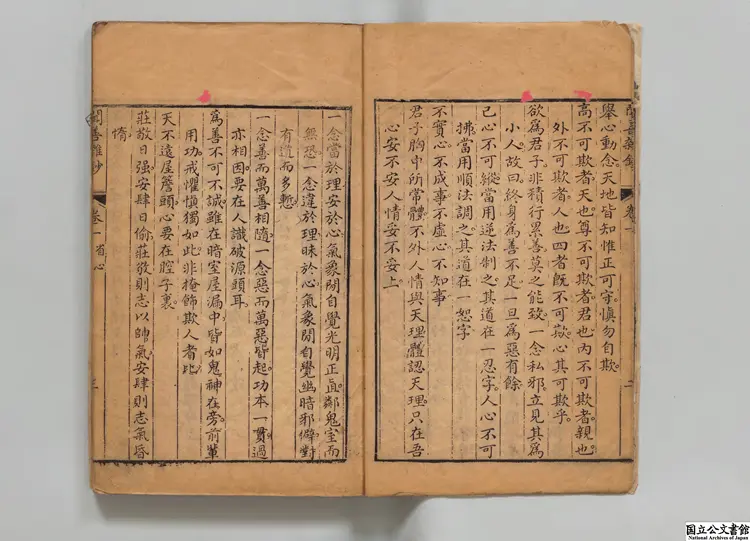 舉心動念天地皆知惟正可守慎勿自欺
高不可欺者天也尊不可欺者君也内不可欺者親也
外不可欺者人也四者既不可欺心其可欺乎
欲為君子非積行累善莫之能致一念私邪立見其為
小人故曰終身為善不足一旦為惡有餘
己心不可縱當用逆法制之其道在一忍字人心不可
拂當用順法調之其道在一恕字
不實心不成事不虚心不知事
君子胸中所常體不外人情與天理體認天理只在吾
心安不安人情安不妥上
一念當於理安於心氣象閒自覺光明正直鄰鬼室而
無恐一念違於理昧於心氣象閒自覺幽暗邪僻對
有道而多慙
一念善而萬善相隨一念惡而萬惡皆起功本一貫過
亦相因要在人識破源頭耳
為善不可不誠雖在暗室屋漏中皆如鬼神在旁前輩
用功戒懼慎獨如此非掩飾欺人者比
天不遠屋簷頭心要在腔子裏
莊敬日强安肆日偷莊敬則志以帥氣安肆則志氣昏
惰
卷一 省心
三
国立公文書館
National Archives of Japan